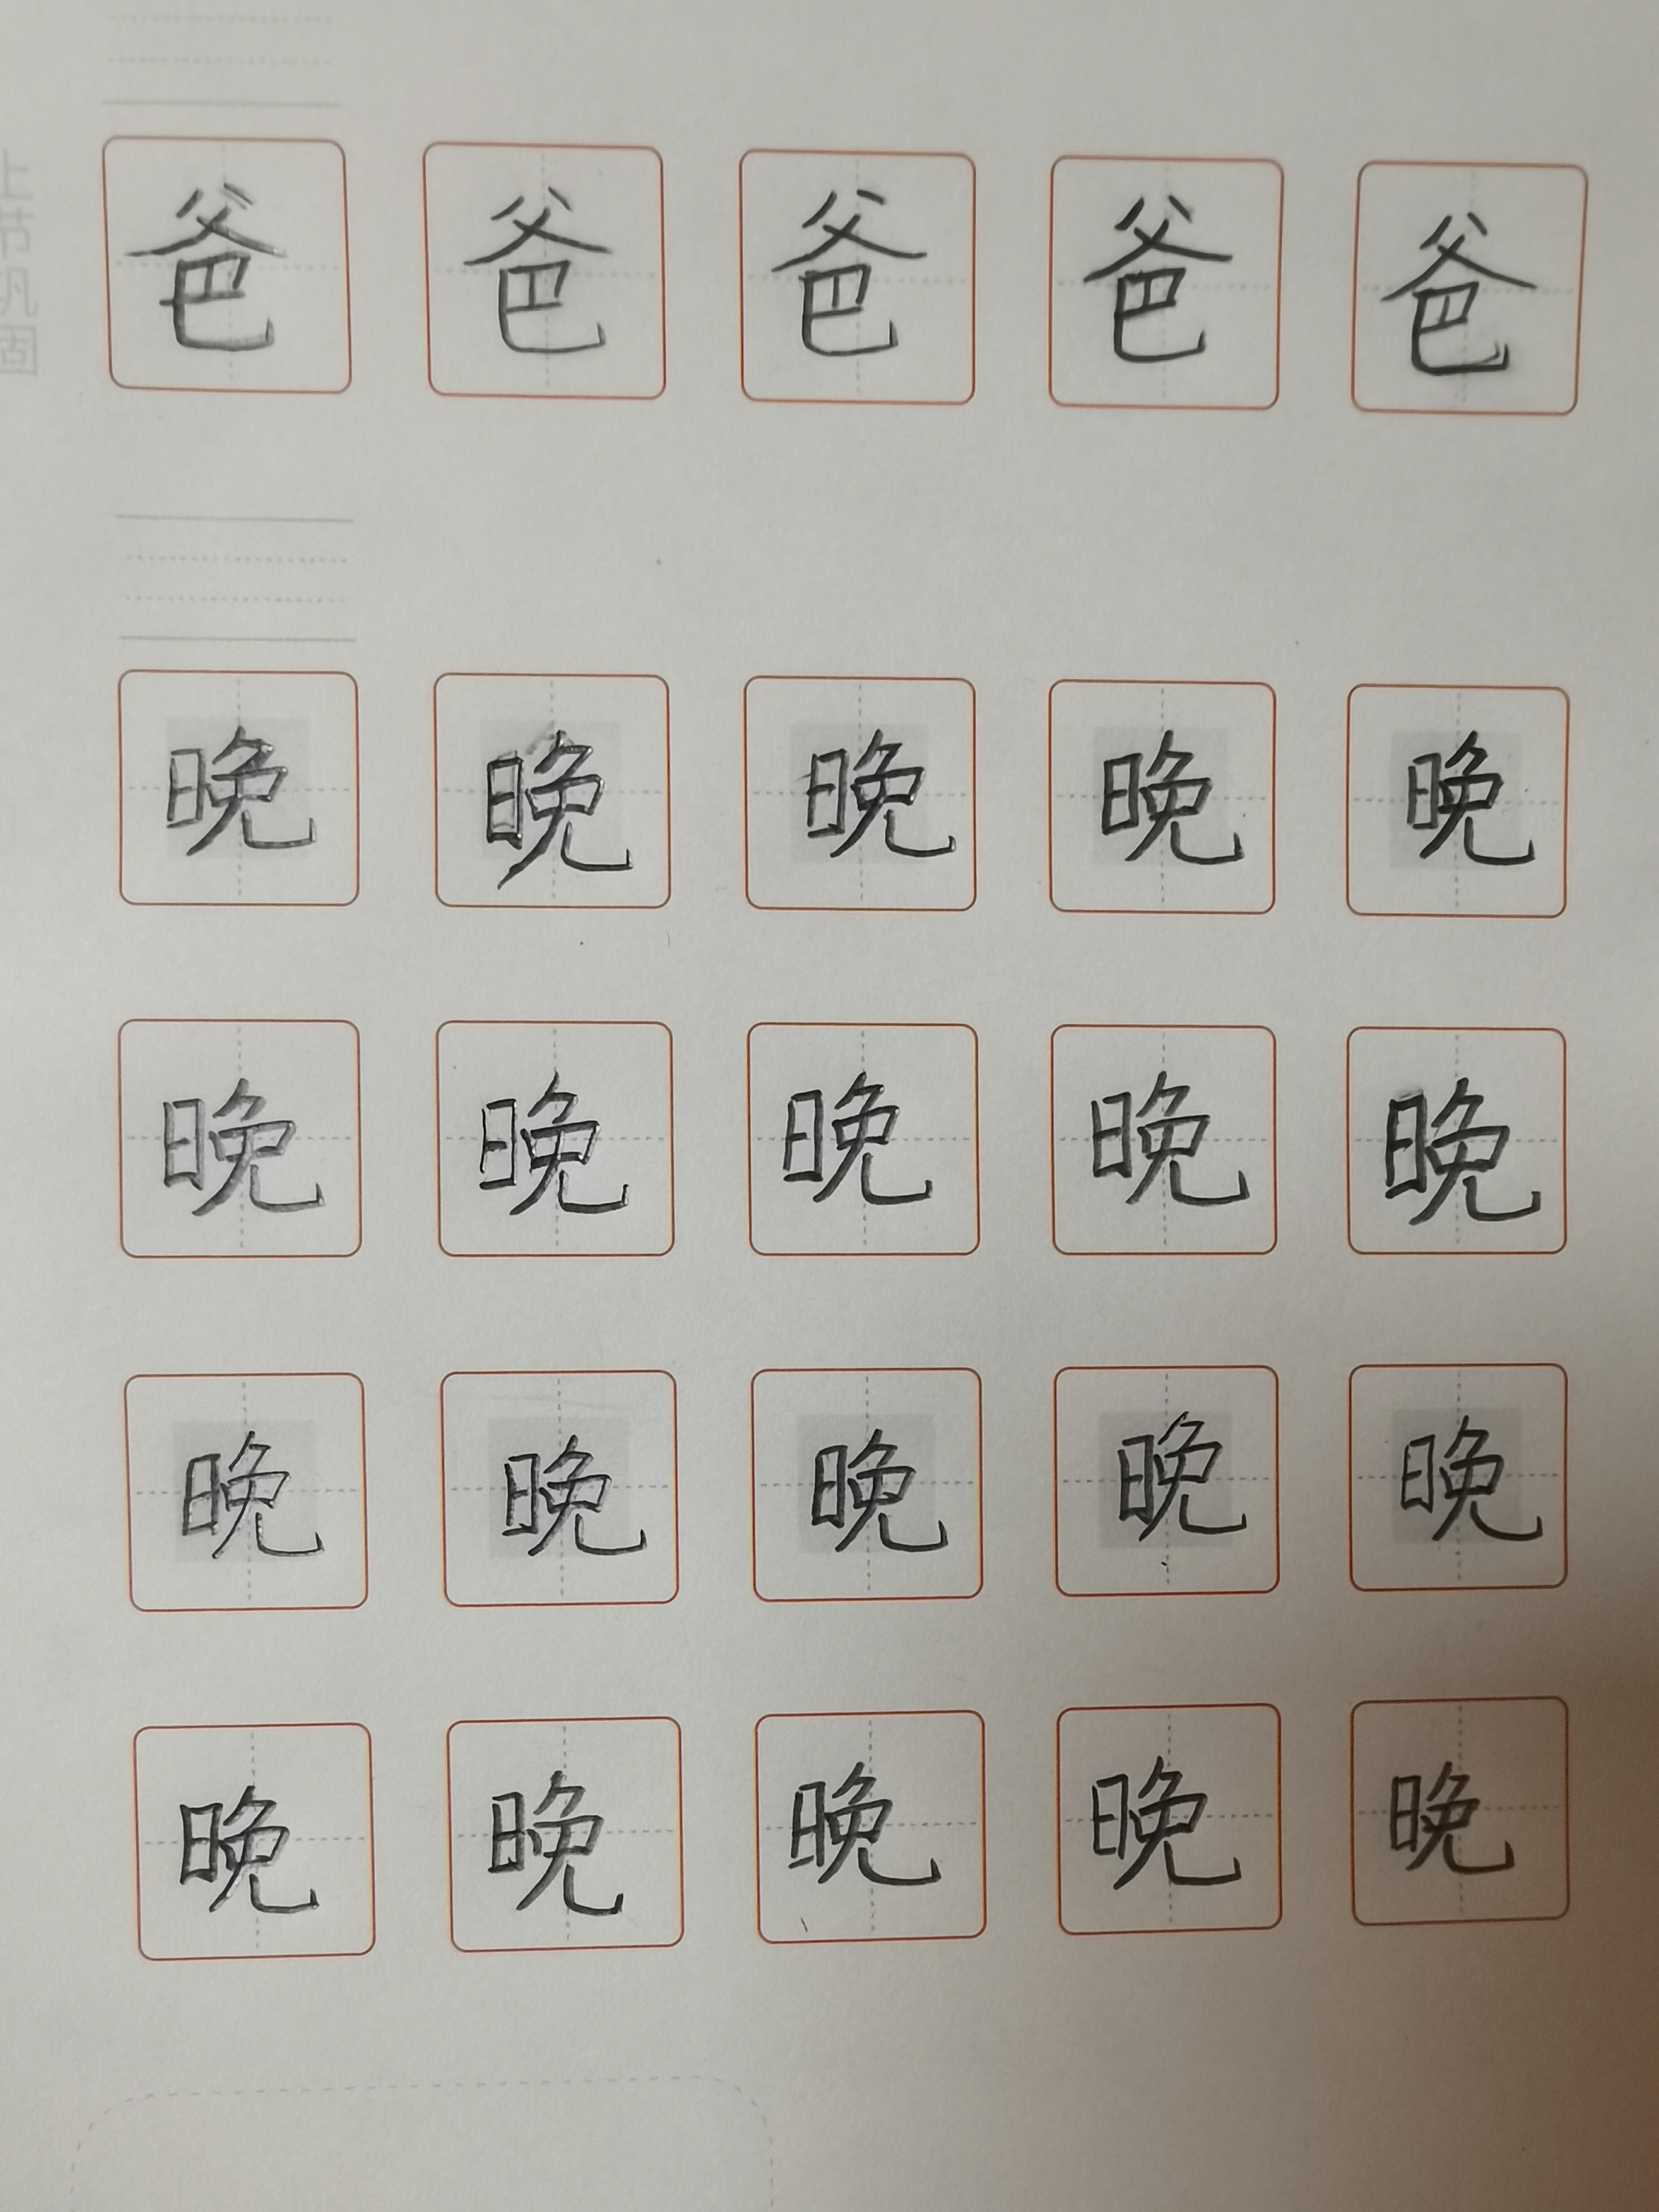 上节巩固
爸 爸 爸 爸 爸
晚 晚 晚 晚 晚
晚 晚 晚 晚 晚
晚 晚 晚 晚 晚
晚 晚 晚 晚 晚